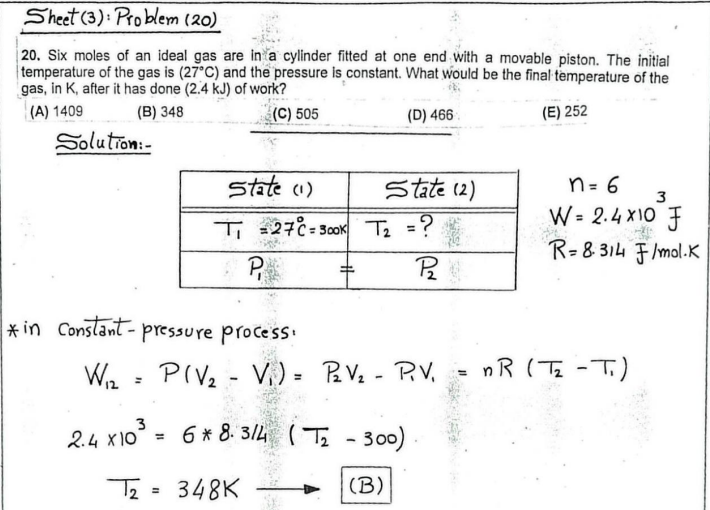 Sheet(3): Problem (20)
20. Six moles of an ideal gas are in a cylinder fitted at one end with a movable piston. The initial
temperature of the gas is (27°C) and the pressure is constant. What would be the final temperature of the
gas, in K, after it has done (2.4 kJ) of work?
(A) 1409 (B) 348 (C) 505 (D) 466 (E) 252
Solution:-
State (1) State (2) n = 6
T₁ = 27°C = 300K T₂ = ? W = 2.4 × 10³ J
P₁ = P₂ R = 8.314 J/mol.K
* in Constant-pressure process:
W₁₂ = P(V₂ - V₁) = P₂V₂ - P₁V₁ = nR (T₂ - T₁)
2.4 × 10³ = 6 * 8.314 (T₂ - 300)
T₂ = 348K → (B)